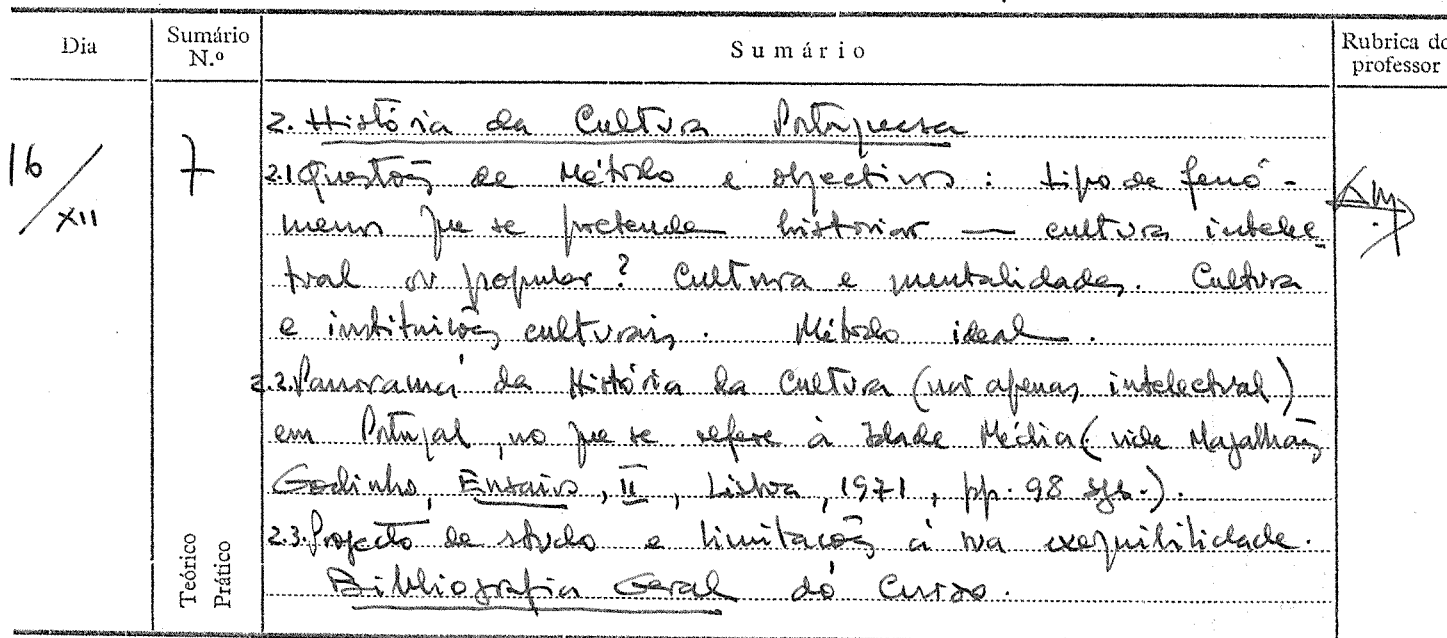 Dia
Sumário N.º
Sumário
Rubrica do professor
16/XII
7
2. História da Cultura Portuguesa
2.1 Questões de Método e objectivos: tipo de fenó-
menos que se pretende historiar — cultura intelec-
tual ou popular? Cultura e mentalidades. Cultura
e instituições culturais. Método ideal.
2.2. Panorama da História da Cultura (não apenas intelectual)
em Portugal, no que se refere à Idade Média (vide Magalhães
Godinho, Ensaios, II, Lisboa, 1971, pp. 98 sgs.).
2.3. Projecto de estudo e limitações à sua exequibilidade.
Bibliografia Geral do Curso.
Teórico
Prático